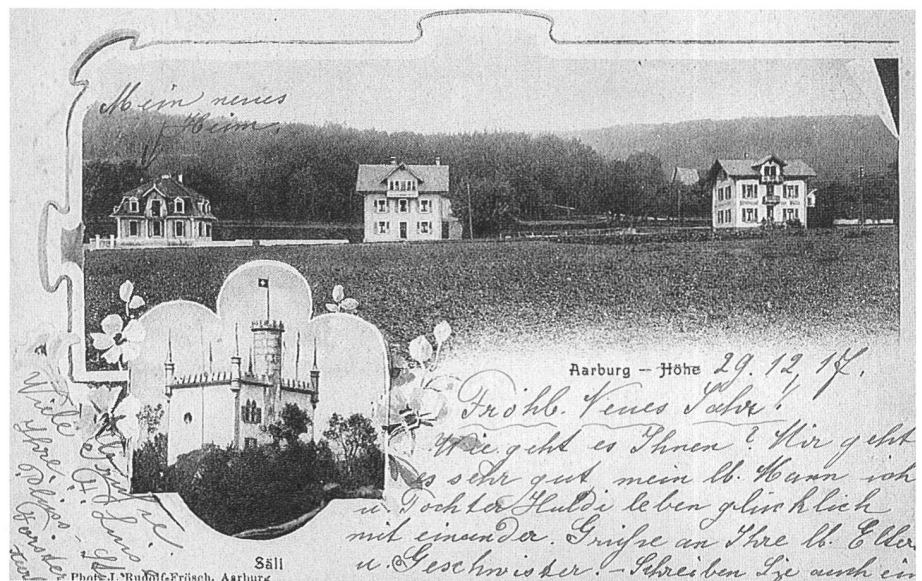 Mein neues
Heim.
Aarburg – Höhe 29. 12. 17.
Fröhl. Neues Jahr!
Wie geht es Ihnen? Mir geht
es sehr gut, mein lb. Mann ich
u. Tochter Huldi leben glücklich
mit einander. Grüsse an Ihre lb. Elter
u. Geschwister. – Schreiben Sie auch ein
Viele Grüsse
Ihre
Säli
Phot. J. Rudolf-Frösch, Aarburg